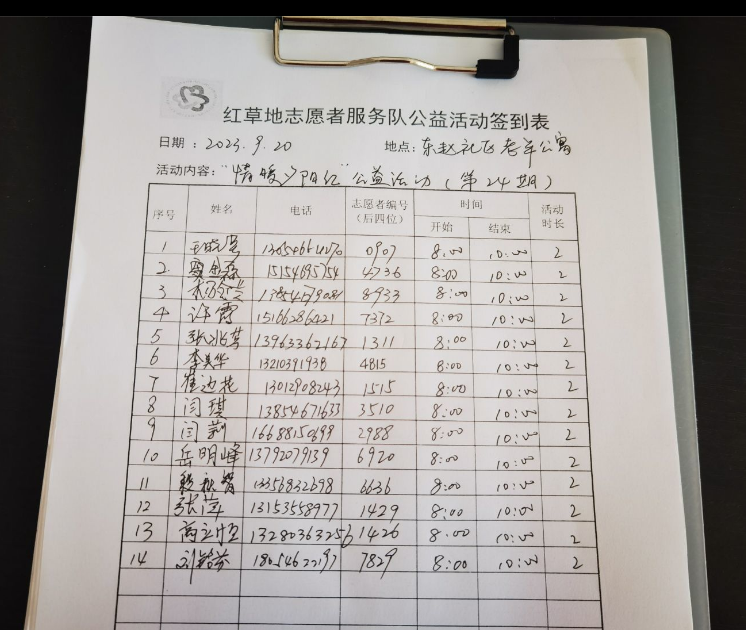 红草地志愿者服务队公益活动签到表
日期：2023.9.20 地点：东赵礼 老年公寓
活动内容："情暖夕阳红"公益活动（第24期）
序号 姓名 电话 志愿者编号（后四位） 时间 活动时长
开始 结束
1 0907 8:00 10:00 2
2. 15154695754 4736 8:00 10:00 2
3 8933 8:00 10:00 2
4 许霞 15166286421 7372 8:00 10:00 2
5 13963362167 1311 8:00 10:00 2
6 李美华 13210391938 4815 8:00 10:00 2
7 崔边花 13012908243 1515 8:00 10:00 2
8 闫琪 13854671633 3510 8:00 10:00 2
9 闫莉 2988 8:00 10:00 2
10 岳明峰 13792079139 6920 8:00 10:00 2
11 13356832698 6636 8:00 10:00 2
12 张萍 13153558977 1429 8:00 10:00 2
13 13280363256 1426 8:00 10:00 2
14 18054622197 7829 8:00 10:00 2